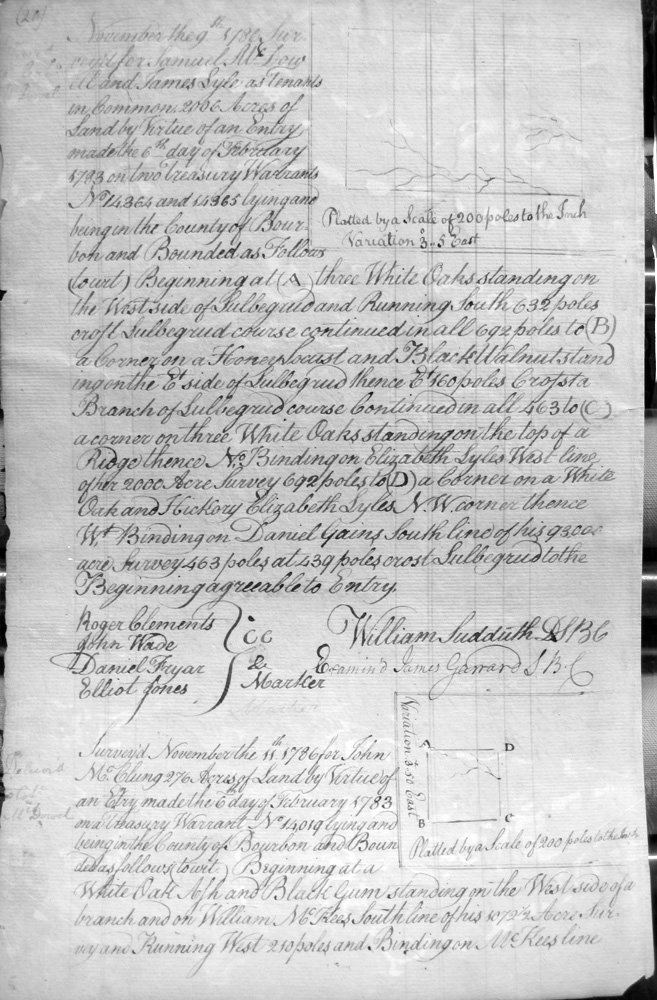 (20)
November the 9th 1786 Sur
veyd for Samuel McDow
ell and James Lyle as Tenants
in Common 2006 Acres of
Land by Virtue of an Entry
made the 6th day of February
1783 on two treasury Warrants
No 14364 and 14365 lying and
being in the County of Bour
bon and Bounded as Follows
Platted by a Scale of 200 poles to the Inch
Variation 3..5 East
(towrt) Beginning at (A) three White Oaks standing on
the West side of Lulbegrud and Running South 632 poles
crost Lulbegrud course continued in all 692 poles to (B)
a Corner on a Honey Locust and Black Walnut stand
ing on the Et side of Lulbegrud thence Et 160 poles Crost a
Branch of Lulbegrud course Continued in all 463 to (C)
a corner on three White Oaks standing on the top of a
Ridge thence No Binding on Elizabeth Lyles West line
of her 2000 Acre Survey 692 poles to (D) a Corner on a White
Oak and Hickory Elizabeth Lyles N.W. corner thence
Wt Binding on Daniel Gains South line of his
acre survey 463 poles at 439 poles crost Lulbegrud to the
Beginning agreeable to Entry.
Roger Clements
John Wade
Daniel Fryar
Elliot Jones
CC
&
Marker
William Sudduth DSBC
Examin'd James Garrard S B.C
Marker
Variation 3..50 East
A D
B C
Platted by a Scale of 200 poles to the Inch
Survey'd November the 11th 1786 for John
McClung 276 Acres of Land by Virtue of
an Etry made the 6 day of February 1783
on a Treasury Warrant No 14019 lying and
being in the County of Bourbon and Boun
ded as follows (towrt.) Beginning at a
White Oak Ash and Black Gum standing on the West side of a
branch and on William McKees South line of his 1072½ Acre Sur-
vey and Running West 210 poles and Binding on McKees line